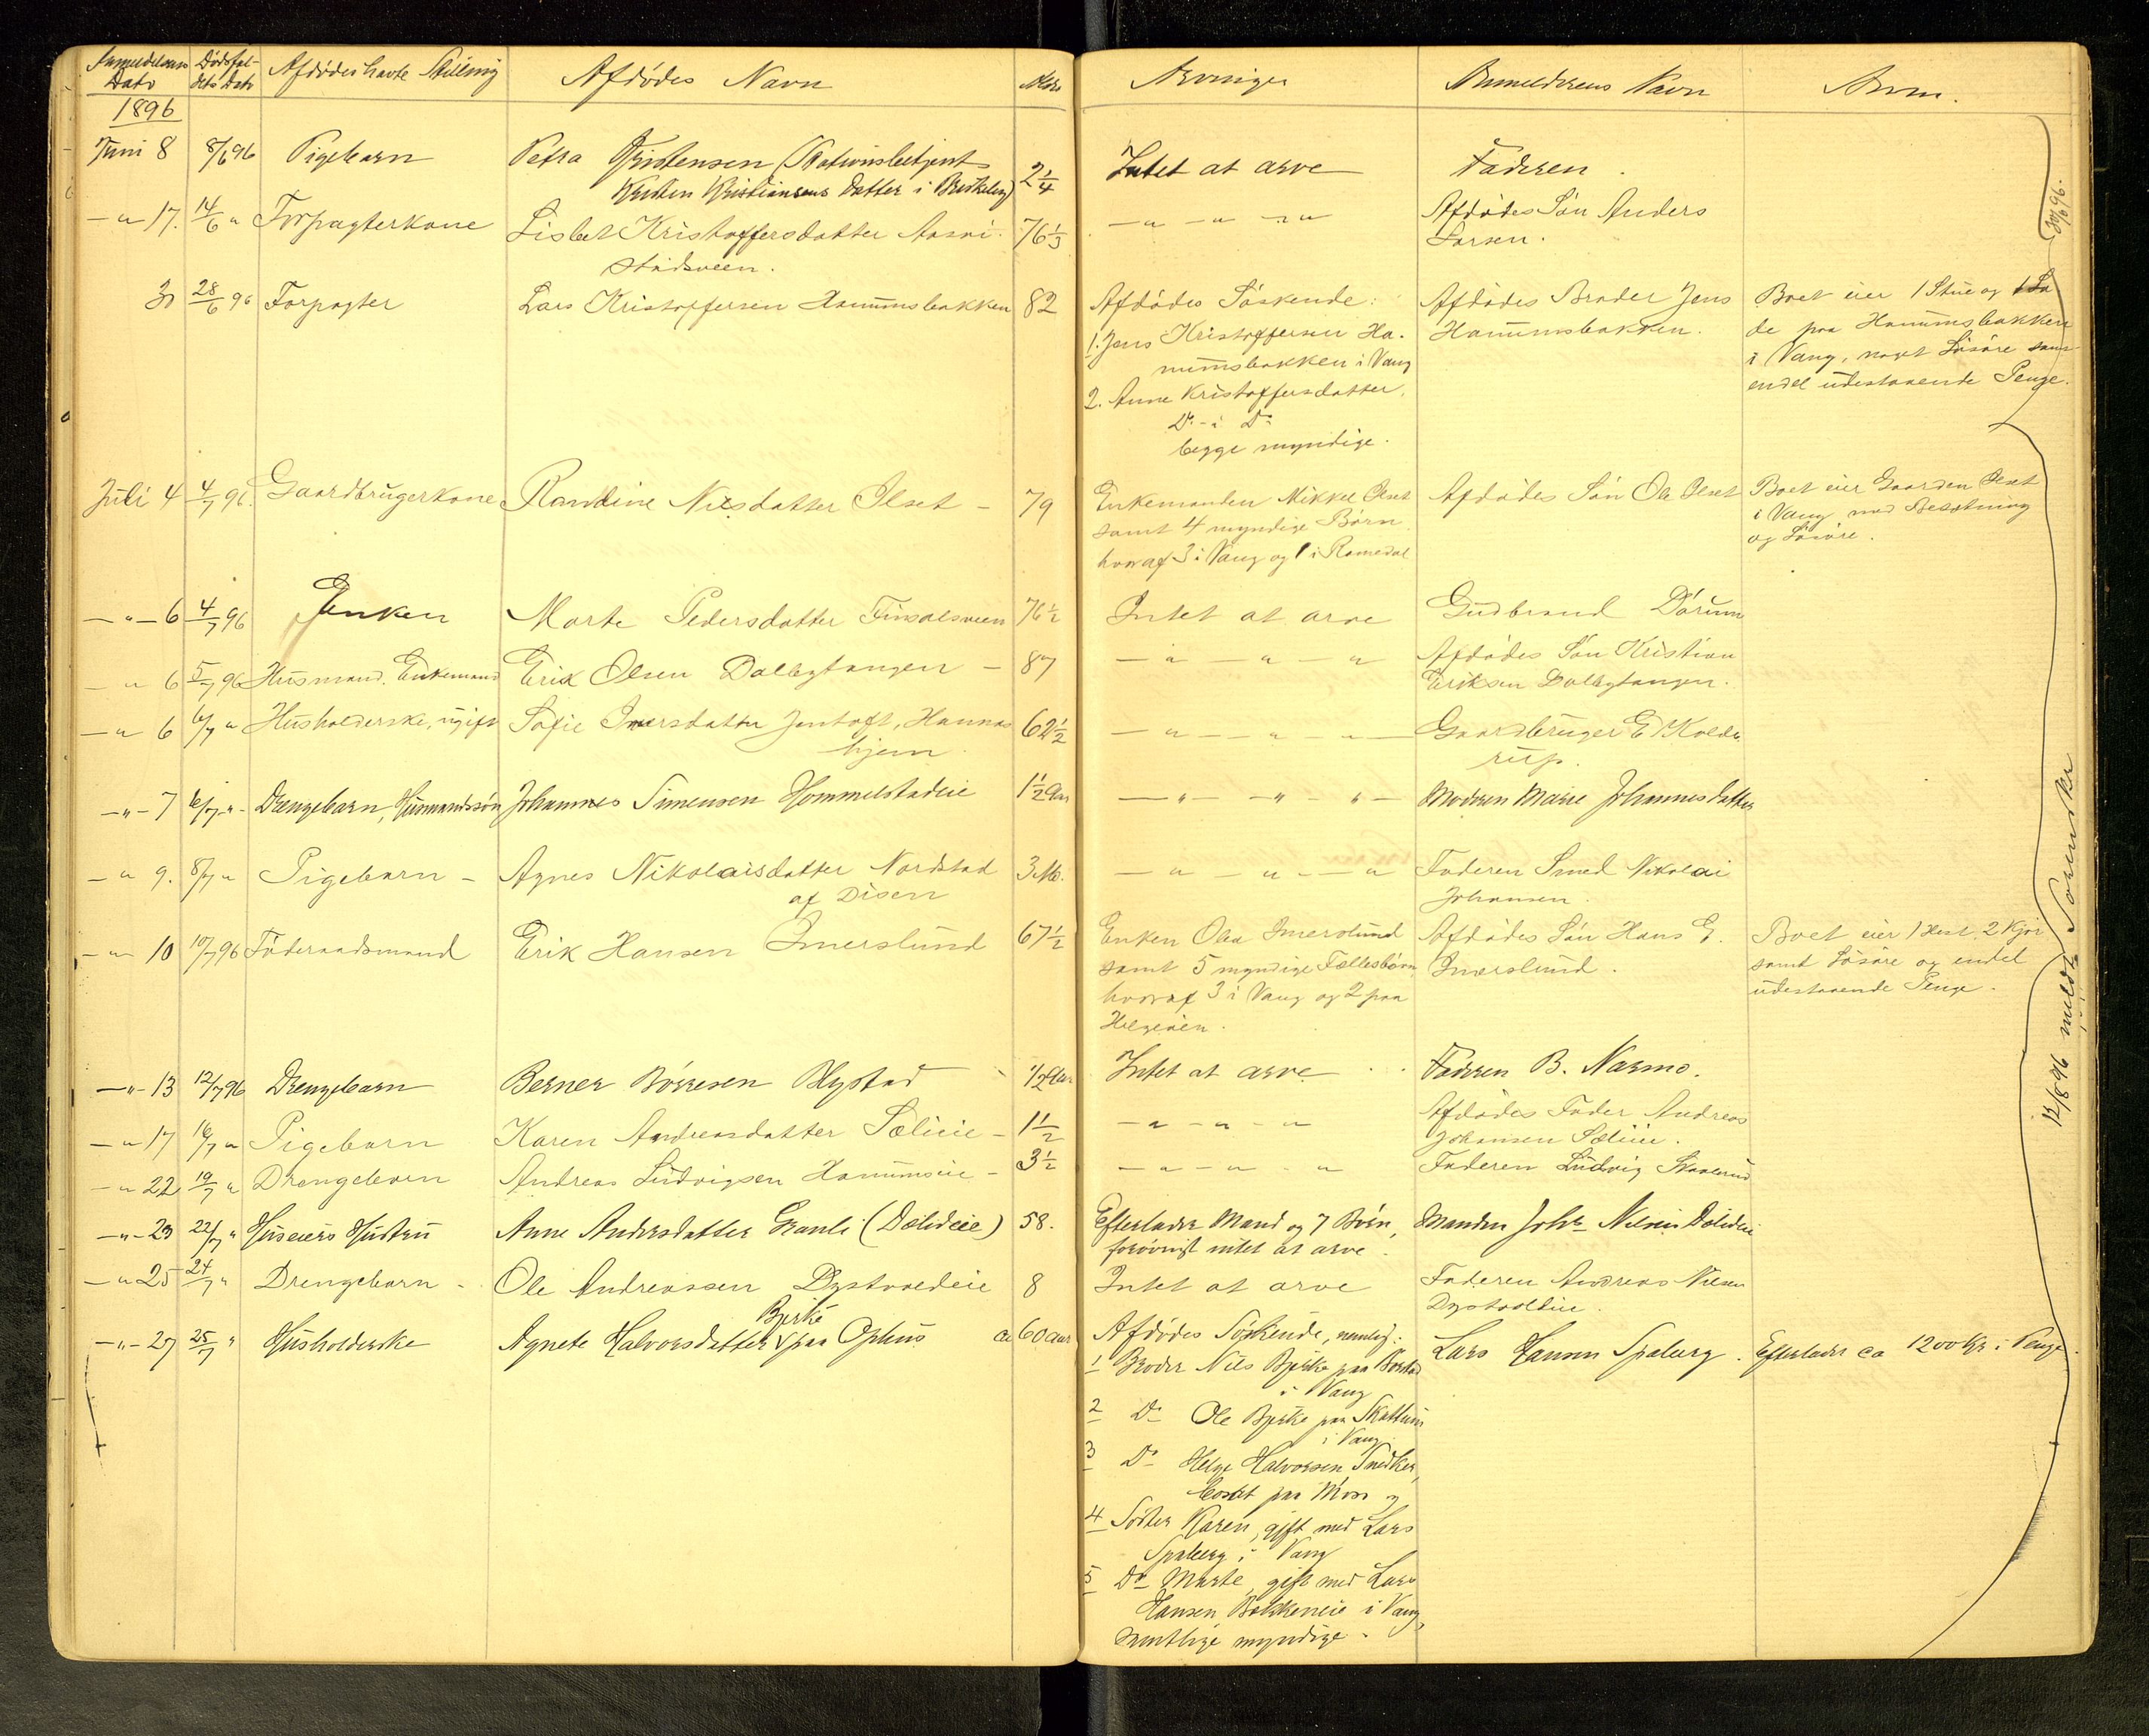 Anmeldelsens Dato Dødsfaldets Dato Afdødes havte Stilling Afdødes Navn Alder Arvinger Anmelderens Navn Anm.
1896
Juni 8 8/6 96 Pigebarn Petra Kristensen (Stationsbetjent 2 1/4 Intet at arve Faderen.
Kristen Kristiansens Datter i Brukelug)
— " 17. 14/6 " Forpagterkone Lisbet Kristoffersdatter 76 1/3 — " — " — " Afdødes Søn Anders
stadsveen. Larsen.
30 28/6 96 Forpagter Lars Kristoffersen Hanumsbakken 82 Afdødes Søskende: Afdødes Broder Jens Boet eier 1 Stue og 1 La
1. Jens Kristoffersen Ha- Hanumsbakken. de paa Hanumsbakken
numsbakken i Vang i Vang, noget Løsøre samt
2. Anne Kristoffersdatter, endel udestaaende Penge.
Do i Do
begge myndige.
Juli 4 4/7 96. Gaardbrugerkone Randine Nilsdatter Ilset — 79 Enkemanden Mikkel Ilset Afdødes Søn Ole Ilset Boet eier Gaarden Ilset
samt 4 myndige Børn i Vang med Besætning
hvoraf 3 i Vang og 1 i Romedal og Løsøre.
— " — 6 4/7 96 Enken Marte Pedersdatter Finsalsveen 76 1/2 Intet at arve Gudbrand Dørum
— " 6 5/7 96 Husmand. Enkemand Erik Olsen Dalbytangen — 87 — " — " — " Afdødes Søn Kristian
Eriksen Dalbytangen.
— " 6 6/7 " Husholderske, ugift Sofie Iversdatter Jentoft, Hannas 62 1/2 — " — " — " — Gaardbruger E Kolde
hjem rup.
— " — 7 6/7 — " — Drengebarn, Husmandssøn Johannes Simensen Hommelstadeie 1 1/2 Aar — " — " — " — Moderen Marie Johannesdatter
— " 9. 8/7 " Pigebarn — Agnes Nikolaisdatter Nordstad 3 M. — " — " — " Faderen Smed Nikolai
af Disen Johansen.
— " — 10 10/7 96 Føderaadsmand Erik Hansen Imerslund 67 1/2 Enken Olea Imerslund Afdødes Søn Hans E. Boet eier 1 Hest 2 Kjør
samt 5 myndige Fællesbørn Imerslund. samt Løsøre og endel
hvoraf 3 i Vang og 2 paa udestaaende Penge.
Helgeøen.
— " — 13 12/7 96 Drengebarn Berner Børresen Blystad 1/2 Aar Intet at arve Faderen B. Narmo.
— " 17 16/7 " Pigebarn Karen Andreasdatter Sælieie — 1 1/2 — " — " — " Afdødes Fader Andreas
Johansen Sælieie.
— " 22 19/7 " Drengebarn Andreas Ludvigsen Hanumseie — 3 1/2 — " — " — " Faderen Ludvig Skaarud
— " — 23 22/7 " Huseiers Hustru Anne Andersdatter Granli (Dælideie) 58. Efterlader Mand og 7 Børn, Manden Johs Nilsen Dælideie
forøvrigt intet at arve.
— " 25 24/7 " Drengebarn — Ole Andreassen Dystvoldeie 8 Intet at arve Faderen Andreas Nilsen
Dystvoldeie.
— " — 27 25/7 " Husholderske Agnete Halvorsdatter Bjerke paa Ophus ca 60 Aar Afdødes Søskende, nemlig: Lars Hansen Spaberg. Efterlader ca 1200 Kr i Penge.
1 Broder Nils Bjerke paa Børstad
i Vang
2 Do Ole Bjerke paa Skattum
i Vang.
3 Do Helge Halvorsen Snedker,
bosat paa Moss og
4 Søster Karen, gift med Lars
Spaberg i Vang
5 Do Marte, gift med Lars
Hansen Bakkeneie i Vang,
samtlige myndige.
30/6 96.
12/8 96 meldt Sorenskr